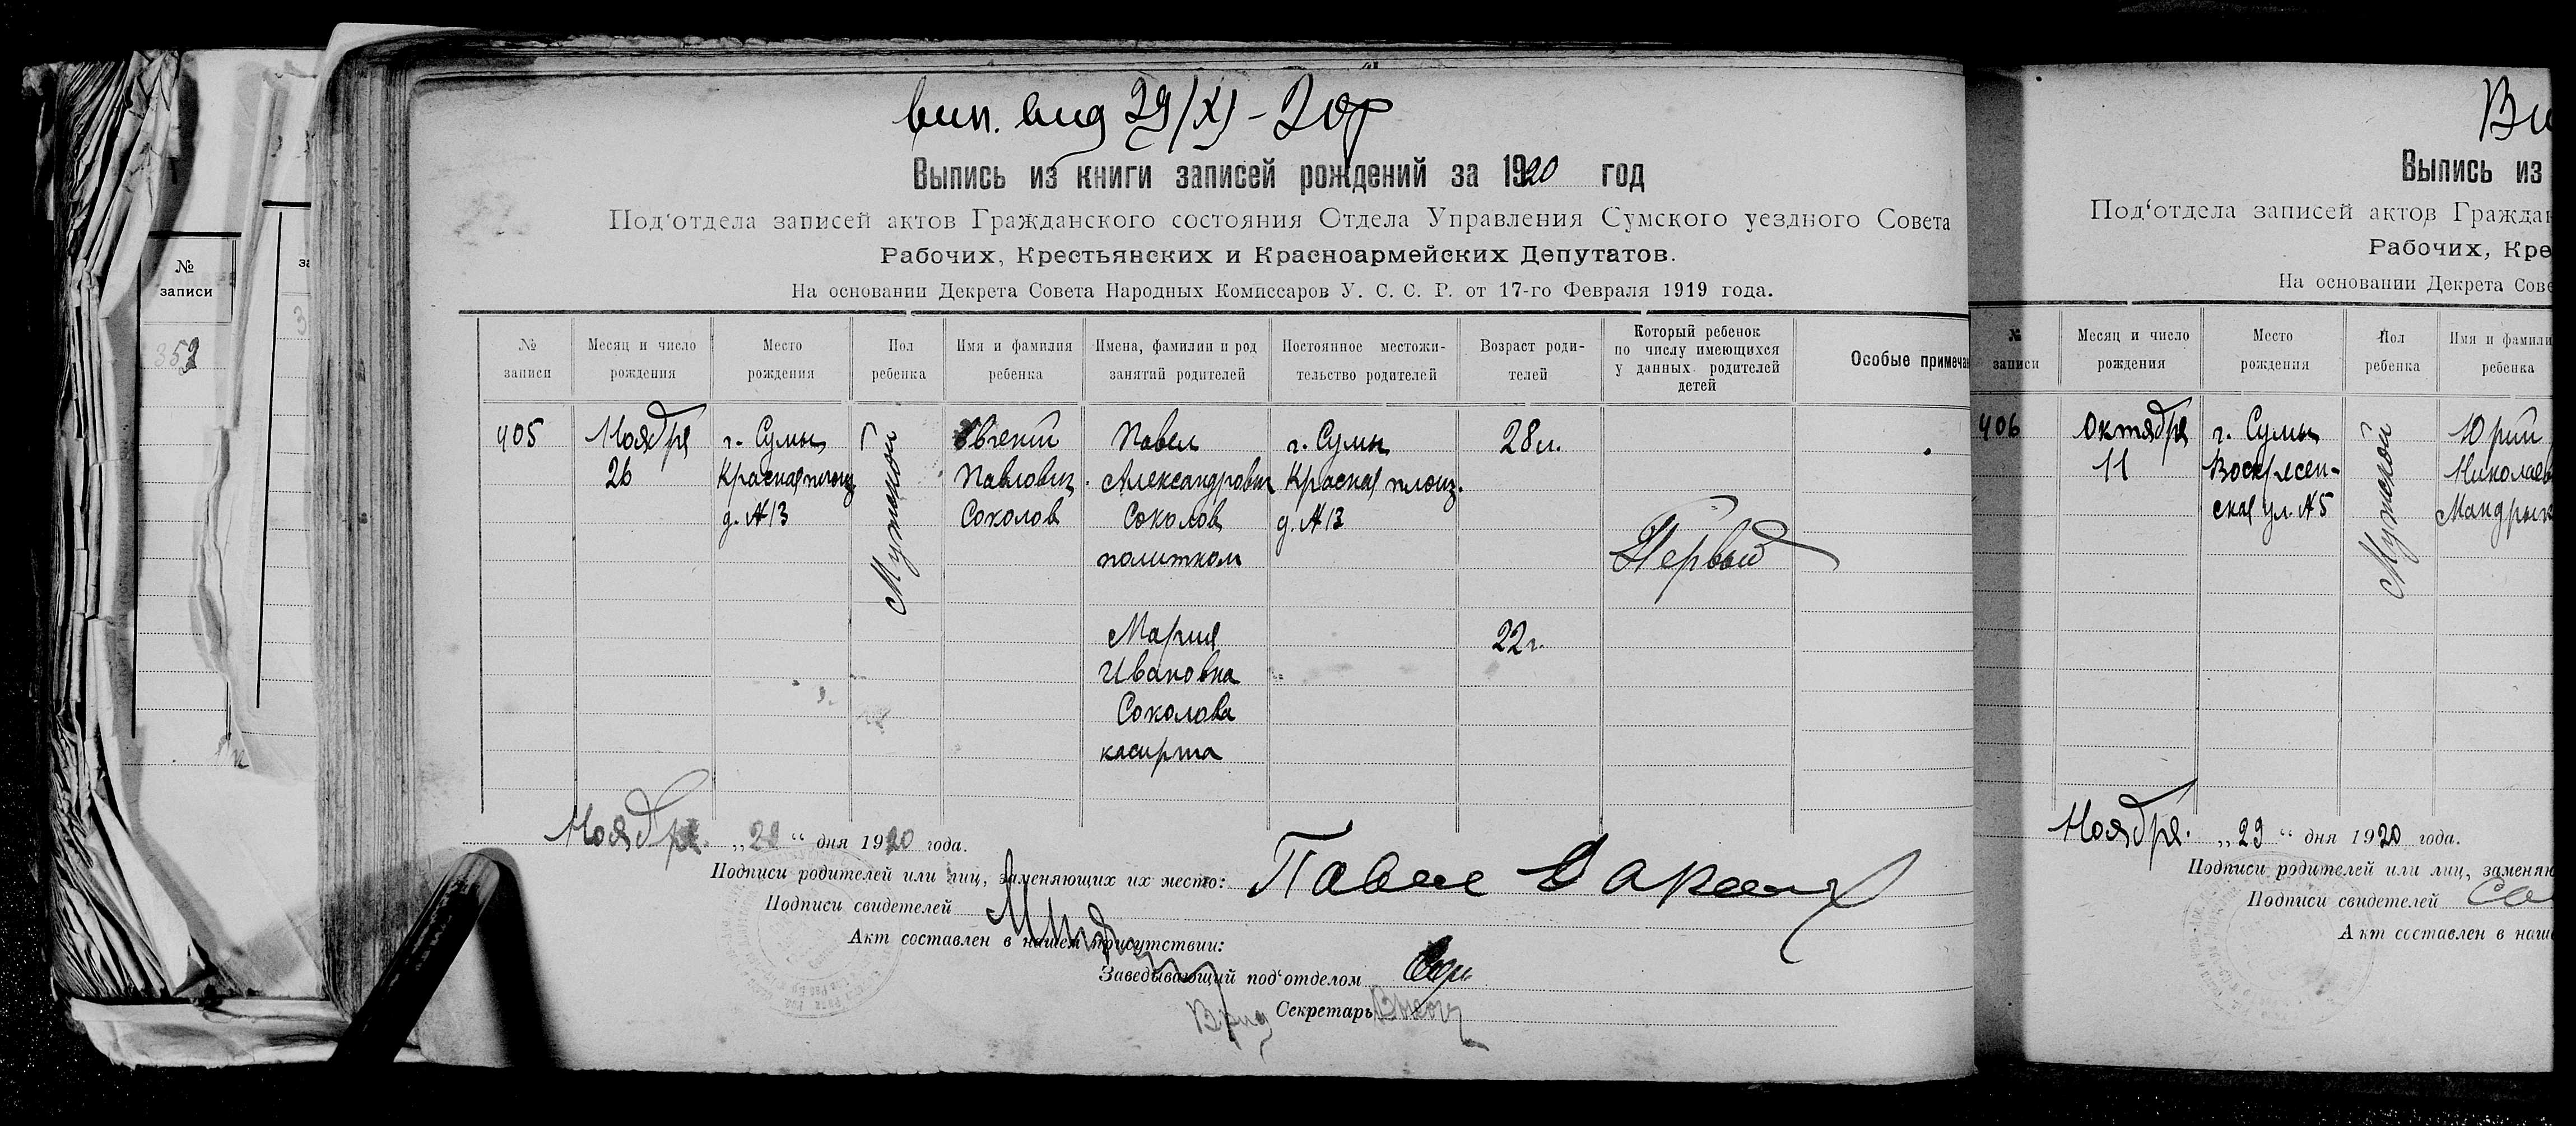 №
записи
353
вип. вид 29/XI-20р
Выпись из книги записей рождений за 1920 год
Под‘отдела записей актов Гражданского состояния Отдела Управления Сумского уездного Совета
Рабочих, Крестьянских и Красноармейских Депутатов.
На основании Декрета Совета Народных Комиссаров У. С. С. Р. от 17-го Февраля 1919 года.
№
записи
Месяц и число
рождения
Место
рождения
Пол
ребенка
Имя и фамилия
ребенка
Имена, фамилии и род
занятий родителей
Постоянное местожи-
тельство родителей
Возраст роди-
телей
Который ребенок
по числу имеющихся
у данных родителей
детей
Особые примечан
405
Ноября
26
г. Сумы
Красная площ
д. №13
Мужской
Евгений
Павлович
Соколов
Павел
Александрович
Соколов
политком
Мария
Ивановна
Соколова
касирша
г. Сумы
Красная площ.
д. №13
28л.
22г.
Первый
Ноября „29“ дня 1920 года.
Подписи родителей или лиц, заменяющих их место: Павел
Подписи свидетелей
Акт составлен в нашем присутствии:
Заведывающий под‘отделом
Врид Секретарь
Ви
Выпись из
Под‘отдела записей актов Граждан
Рабочих, Кре
На основании Декрета Сове
№
записи
Месяц и число
рождения
Место
рождения
Пол
ребенка
Имя и фамили
ребенка
406
Октября
11
г. Сумы
Воскресен-
ская ул. №5
Мужской
Юрий
Николаев
Ноября „29“ дня 1920 года.
Подписи родителей или лиц, заменяю
Подписи свидетелей
Акт составлен в наше